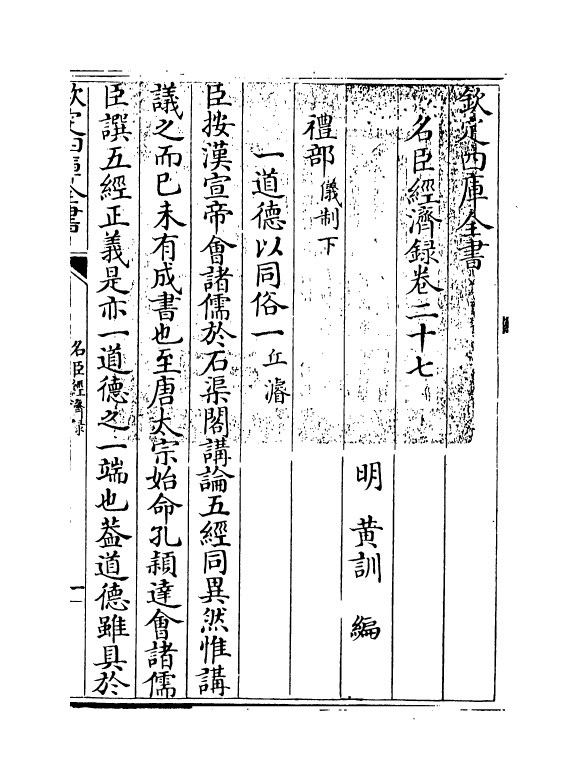 欽定四庫全書
名臣經濟録卷二十七
明 黃訓 編
禮部儀制下
一道德以同俗一 丘濬
臣按漢宣帝會諸儒於石渠閣講論五經同異然惟講
議之而已未有成書也至唐太宗始命孔頴達會諸儒
臣譔五經正義是亦一道德之一端也葢道德雖具於
欽定四庫全書
名臣經濟録
一